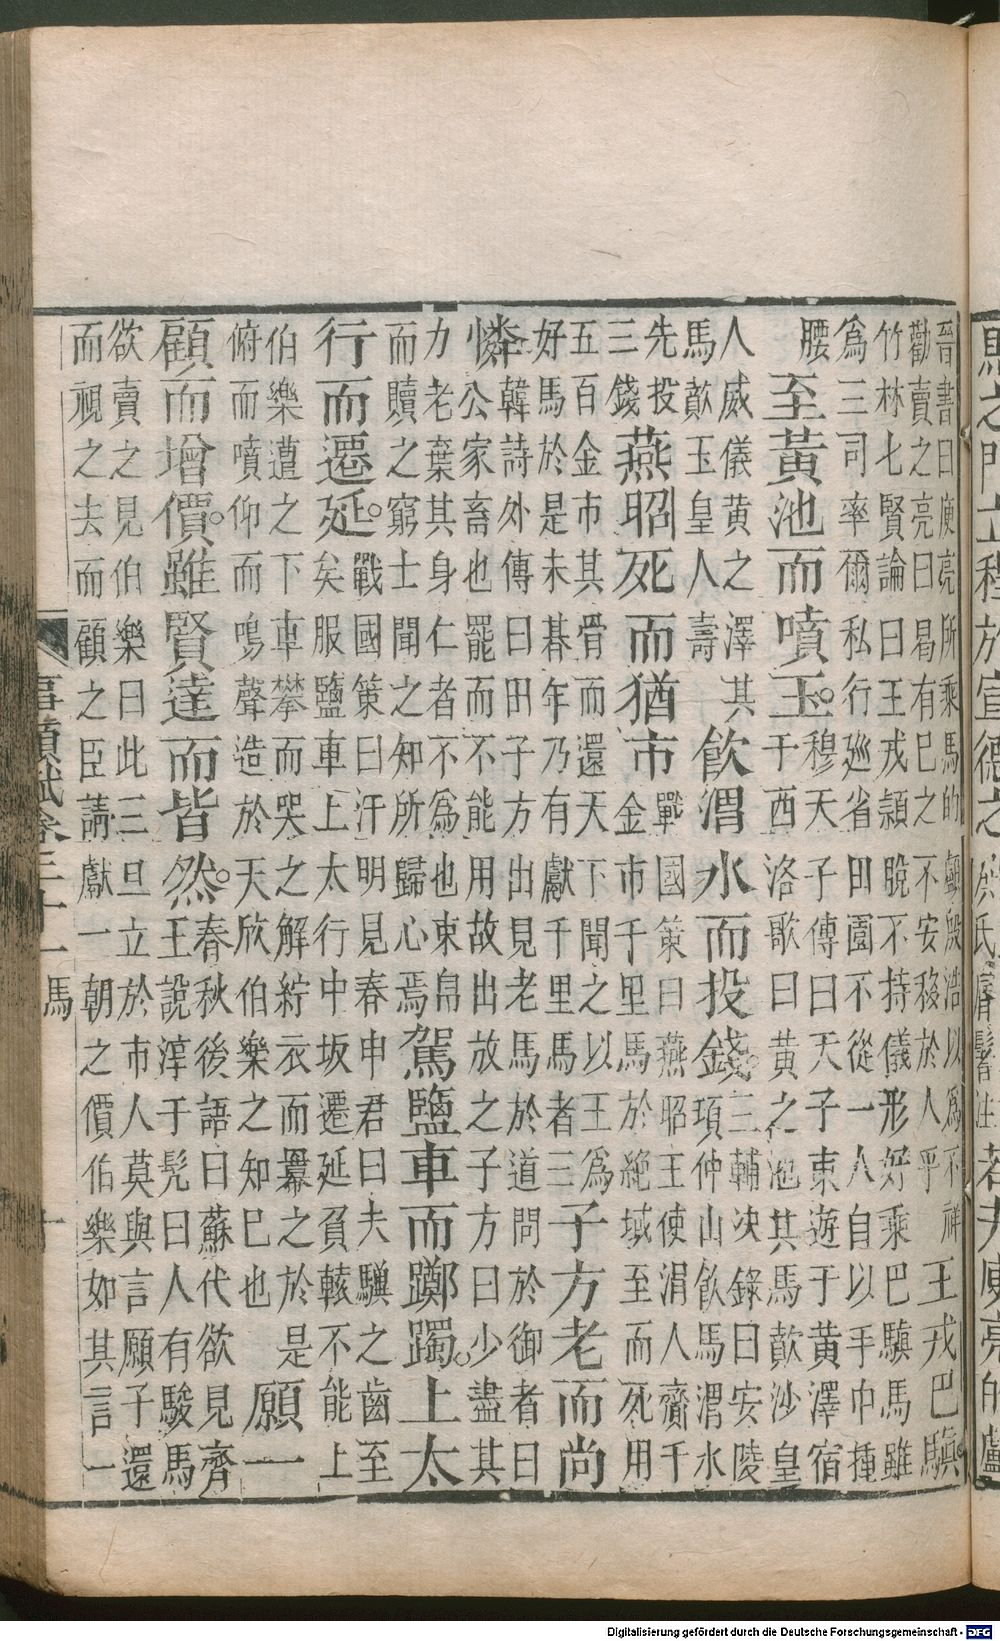 馬之門立程於宣德之
若夫庾亮的顱
晉書曰庾亮所乘馬的顱殷浩以為不祥
勸賣之亮曰曷有己之不安移於人乎
王戎巴驥
竹林七賢論曰王戎頴脫不持儀形好乘巴驥馬雖
為三司率爾私行廵省田園不從一人自以手巾揰
腰
至黃池而噴玉。
穆天子傳曰天子東遊于黃澤宿
于西洛歌曰黃之池其馬歕沙皇
人威儀黃之澤其
馬歕玉皇人壽
飲渭水而投錢。
三輔决錄曰安陵
項仲山飲馬渭水
先投
三錢
燕昭死而猶市
戰國策曰燕昭王使涓人齎千
金市千里馬於絕域至而死用
五百金市其骨而還天下聞之以王為
好馬於是未朞年乃有獻千里馬者三
子方老而尚
憐
韓詩外傳曰田子方出見老馬於道問於御者曰
公家畜也罷而不能用故出放之子方曰少盡其
力老棄其身仁者不為也束帛
而贖之窮士聞之知所歸心焉
駕鹽車而躑躅。上太
行而遷延。
戰國策曰汗明見春申君曰夫驥之齒至
矣服鹽車上太行中坂遷延負轅不能上
伯樂遭之下車攀而哭之解紵衣而羃之於是
俯而噴仰而鳴聲造於天欣伯樂之知己也
願一
顧而增價。雖賢達而皆然。
春秋後語曰蘇代欲見齊
王說淳于髡曰人有駿馬
欲賣之見伯樂曰此三旦立於市人莫與言願子還
而視之去而顧之臣請獻一朝之價伯樂如其言一
事類賦卷二十一 馬 十
Digitalisierung gefördert durch die Deutsche Forschungsgemeinschaft - DFG